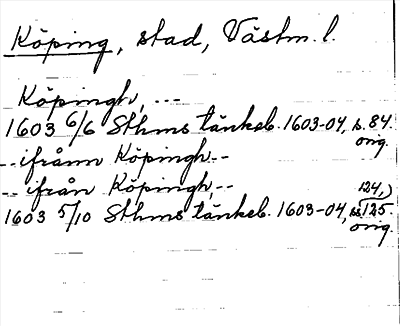 Köping, stad, Västm. l.
Köpingh, ---
1603 6/6 Sthms tänkeb. 1603-04, s. 84.
orig.
-- ifrånn Köpingh --
-- ifrån Köpingh, --
124,)
1603 5/10 Sthms tänkeb. 1603-04, s. 125.
orig.